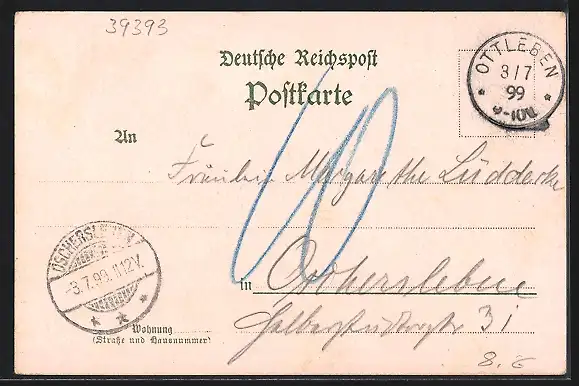 39393
Deutsche Reichspost
Postkarte
OTTLEBEN
3/7
99
An
Fräulein Margarethe Lüddecke
10
OSCHERSLEBEN
-3.7.99.11.12V.
in Oschersleben
Wohnung
(Straße und Hausnummer)
Halberstädterstr 31